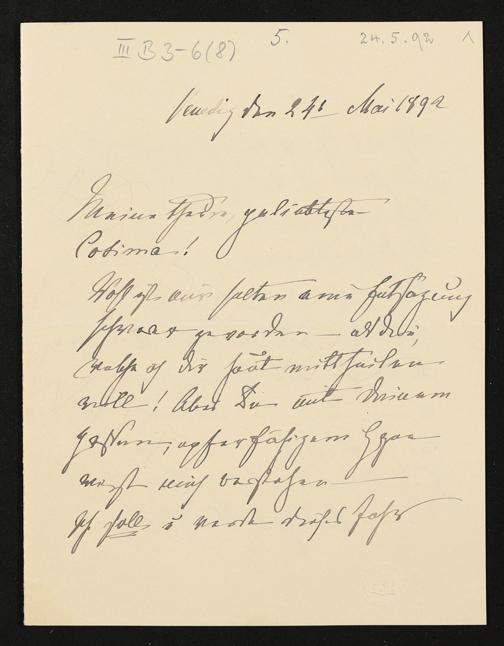 III B 3-6(8) 5. 24.5.92 1
Venedig den 24t Mai 1892
Meine theure, geliebteste
Cosima!
Wohl ist mir selten eine Entsagung
schwerer geworden – als die,
welche ich dir heut mittheilen
will! Aber Du mit Deinem
großen, opferfähigem
wirst mich verstehen
Ich soll u werde dieses Jahr